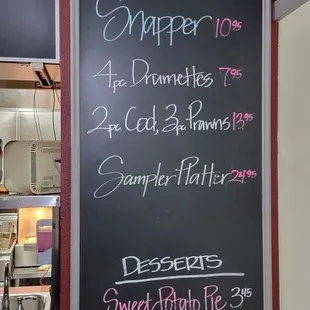 Snapper 10.95
4pc. Drumettes 7.95
2pc. Cod, 3pc. Prawns 13.95
Sampler Platter 24.95
DESSERTS
Sweet Potato Pie 3.45